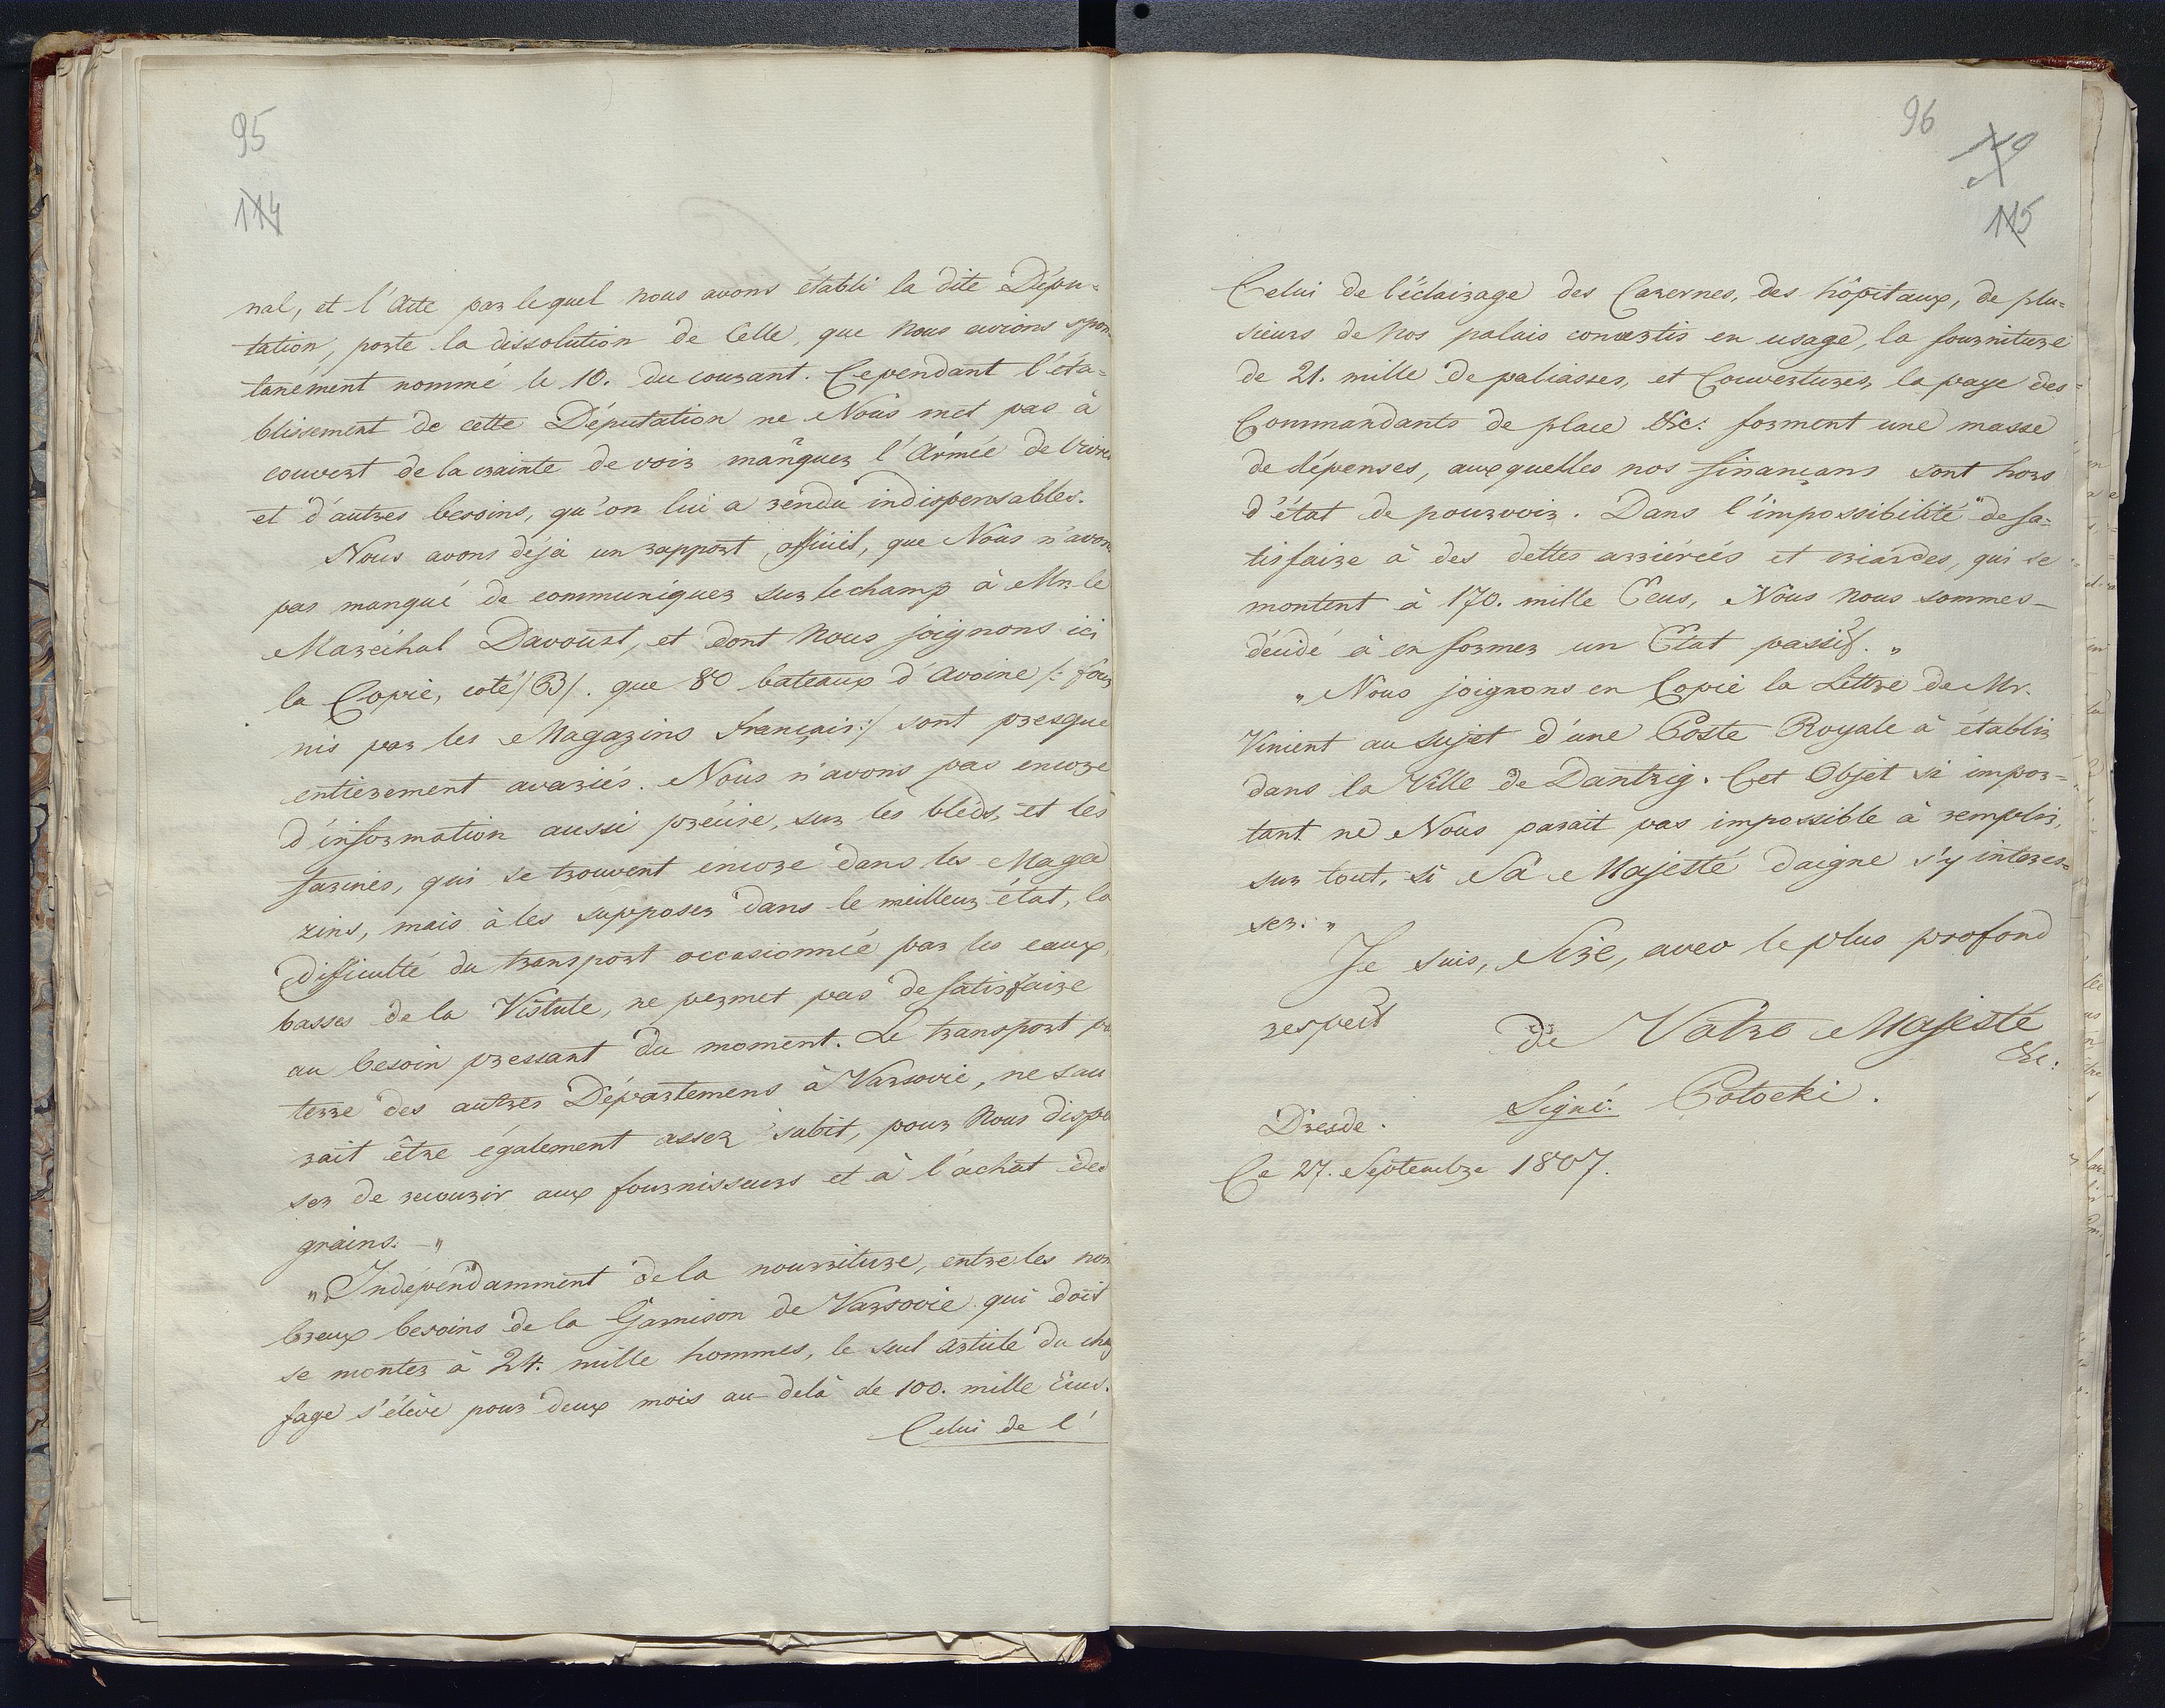 95
114
nal, et l'Acte par lequel nous avons établi la dite Dépu=
tation, porte la dissolution de Celle, que nous avions spon
tanément nommé le 10. du courant. Cependant l'éta=
blissement de cette Députation ne Nous met pas à
couvert de la crainte de voir manquer l'Armée de vivres
et d'autres besoins, qu'on lui a rendu indispensables.
Nous avons déja un rapport officiel, que Nous n'avons
pas manqué de communiquer sur le champ à Mr. le
Maréchal Davoust, et dont nous joignons ici
la Copie, coté /B/. que 80 bateaux d'avoine /: four
nis par les Magazins français :/ sont presque
entièrement avariés. Nous n'avons pas encore
d'information aussi précise, sur les bléds, et les
farines, qui se trouvent encore dans les Maga
zins, mais à les supposer dans le meilleur état, la
difficulté du transport occasionnée par les eaux
basses de la Vistule, ne permet pas de satisfaire
au besoin pressant du moment. Le transport p
terre des autres Départemens à Varsovie, ne sau
rait être également assez subit, pour nous dispe
ser de recourir aux fournisseurs et à l'achat des
grains. — "
" Indépendamment de la nourriture, entre les nom
breux besoins de la Garnison de Varsovie qui doit
se monter à 24. mille hommes, le seul article du chau
fage s'élève pour deux mois au delà de 100. mille Ecus.
Celui de l'
96
115
Celui de l'éclairage des Casernes, des hôpitaux, de plu=
sieurs de nos palais convertis en usage, la fourniture
de 21. mille de paliasses, et Couvertures, la paye des
Commandants de place &c: forment une masse
de dépenses, auxquelles nos finançans sont hors
d'état de pourvoir. Dans l'impossibilité de sa=
tisfaire à des dettes arriérées et criardes, qui se
montent à 170. mille Ecus, Nous nous sommes—
décidé à en former un Etat passif. "
" Nous joignons en Copie la Lettre de Mr.
Vinient au sujet d'une Poste Royale à établir
dans la Ville de Dantzig. Cet Objet si impor=
tant ne Nous parait pas impossible à remplir,
sur tout, si Sa Majesté daigne s'y interes=
ser. "
Je suis, Sire, avec le plus profond
respect
de Votre Majesté
&c:
Signé: Potocki.
Dresde.
Ce 27. Septembre 1807.